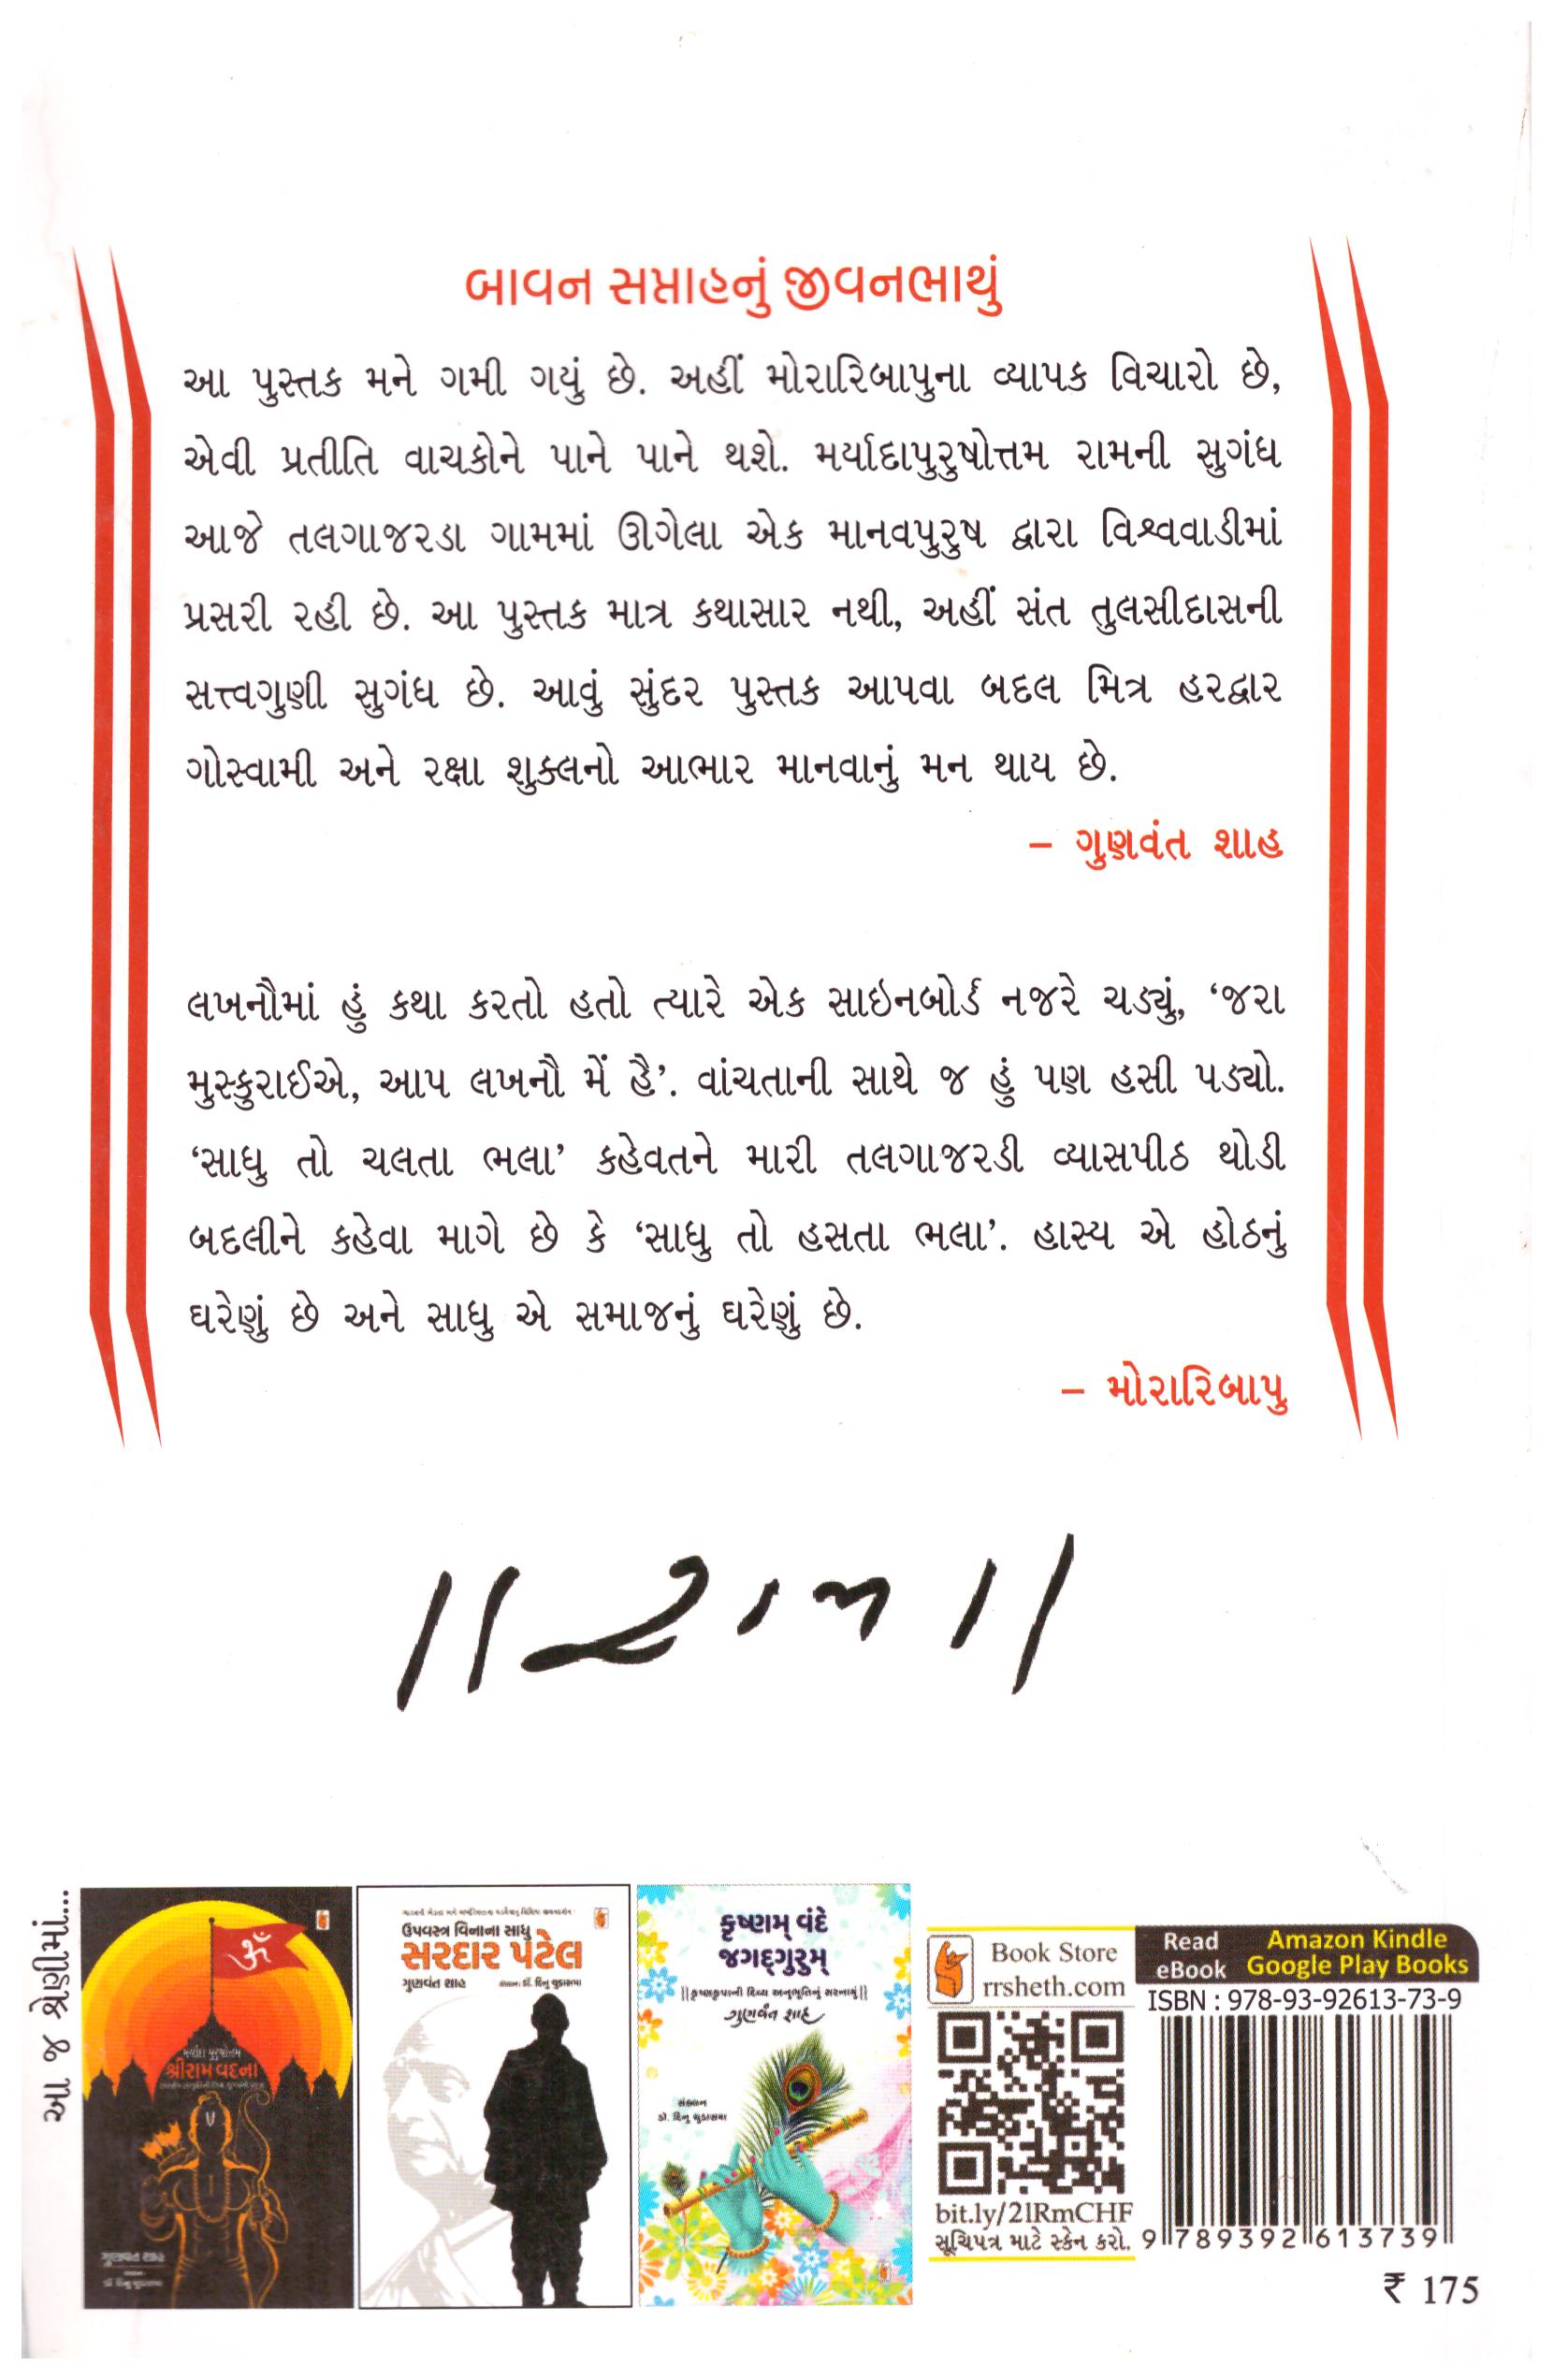 બાવન સપ્તાહનું જીવનભાથું
આ પુસ્તક મને ગમી ગયું છે. અહીં મોરારિબાપુના વ્યાપક વિચારો છે,
એવી પ્રતીતિ વાચકોને પાને પાને થશે. મર્યાદાપુરુષોત્તમ રામની સુગંધ
આજે તલગાજરડા ગામમાં ઊગેલા એક માનવપુરુષ દ્વારા વિશ્વવાડીમાં
પ્રસરી રહી છે. આ પુસ્તક માત્ર કથાસાર નથી, અહીં સંત તુલસીદાસની
સત્ત્વગુણી સુગંધ છે. આવું સુંદર પુસ્તક આપવા બદલ મિત્ર હરદ્વાર
ગોસ્વામી અને રક્ષા શુક્લનો આભાર માનવાનું મન થાય છે.
– ગુણવંત શાહ
લખનૌમાં હું કથા કરતો હતો ત્યારે એક સાઇનબોર્ડ નજરે ચડ્યું, ‘જરા
મુસ્કુરાઈએ, આપ લખનૌ મેં હૈ’. વાંચતાની સાથે જ હું પણ હસી પડ્યો.
‘સાધુ તો ચલતા ભલા’ કહેવતને મારી તલગાજરડી વ્યાસપીઠ થોડી
બદલીને કહેવા માગે છે કે ‘સાધુ તો હસતા ભલા’. હાસ્ય એ હોઠનું
ઘરેણું છે અને સાધુ એ સમાજનું ઘરેણું છે.
– મોરારિબાપુ
॥ રામ ॥
આ જ શ્રેણીમાં...
ૐ
મર્યાદા પુરુષોત્તમ
શ્રીરામ વંદના
ગુણવંત શાહ
ઉપવસ્ત્ર વિનાના સાધુ
સરદાર પટેલ
ગુણવંત શાહ
સંકલન: ડૉ. દિનુ ચુડાસમા
કૃષ્ણમ્ વંદે
જગદ્ગુરુમ્
||કૃષ્ણકૃપાની દિવ્ય અનુભૂતિનું સરનામું||
ગુણવંત શાહ
સંકલન
ડૉ. દિનુ ચુડાસમા
Book Store
rrsheth.com
bit.ly/2lRmCHF
સૂચિપત્ર માટે સ્કેન કરો.
Read eBook
Amazon Kindle
Google Play Books
ISBN : 978-93-92613-73-9
9 789392 613739
₹ 175